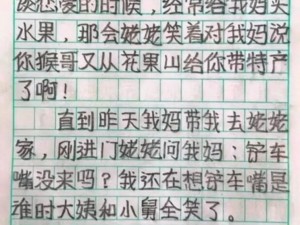 谈恋爱的时候，经常给我妈买
水果，那会姥姥笑着对我妈说
你猴哥又从花果山给你带特产
了啊！
直到昨天我妈带我去姥姥
家，刚进门姥姥问我妈：铲车
嘴没来吗？我还在想铲车嘴是
谁时大姨和小舅全笑了。